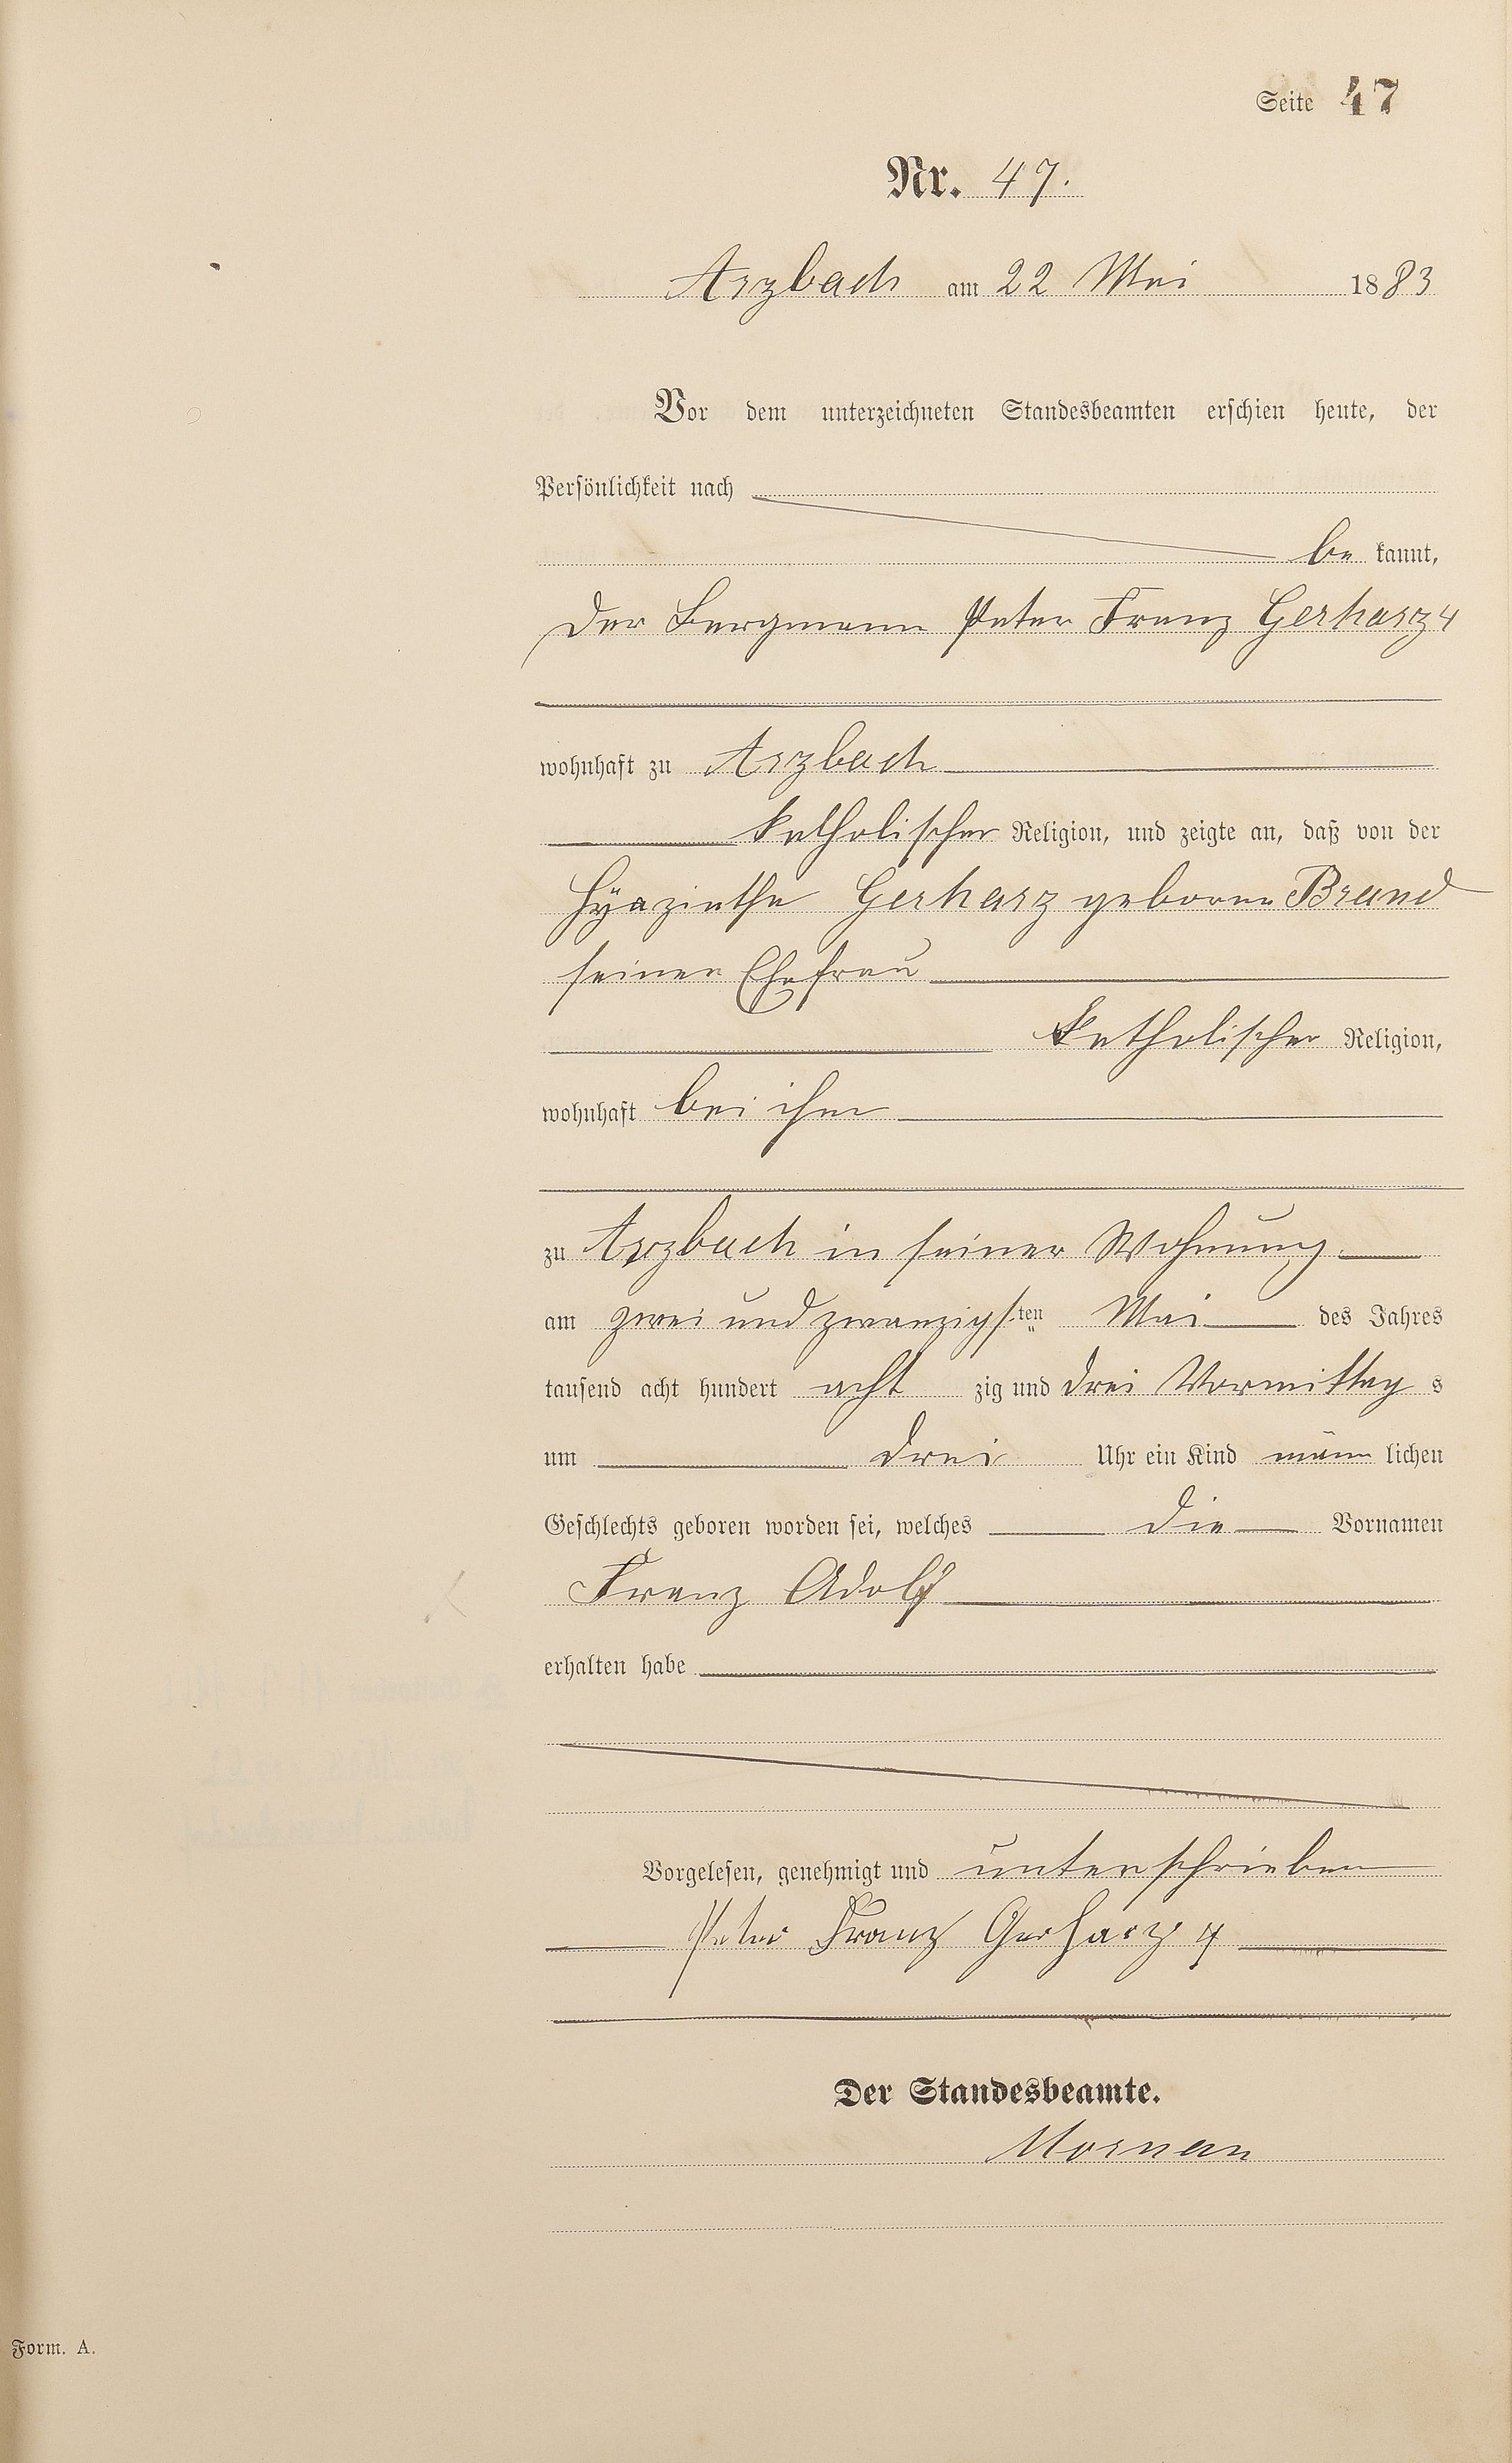 Seite 47
Nr. 47.
Arzbach am 22 Mai 1883
Vor dem unterzeichneten Standesbeamten erschien heute, der
Persönlichkeit nach
be kannt,
der Bergmann Peter Franz Gerharz 4
wohnhaft zu Arzbach
katholischer Religion, und zeigte an, daß von der
Hyazintha Gerharz geborne Brand
seiner Ehefrau
katholischer Religion,
wohnhaft bei ihm
zu Arzbach in seiner Wohnung
am zwei und zwanzigsten Mai des Jahres
tausend acht hundert acht zig und drei Vormittag s
um drei Uhr ein Kind männ lichen
Geschlechts geboren worden sei, welches die Vornamen
Franz Adolf
erhalten habe
Vorgelesen, genehmigt und unterschrieben
Peter Franz Gerharz 4
Der Standesbeamte.
Form. A.